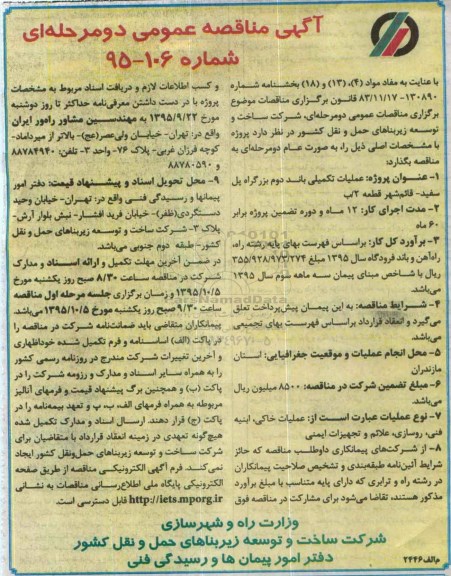 آگهی مناقصه عمومی دومرحله‌ای
شماره ۱۰۶-۹۵
با عنایت به مفاد مواد (۴)، (۱۳) و (۱۸) بخشنامه شماره
۱۳۰۸۹۰- ۸۳/۱۱/۱۷ قانون برگزاری مناقصات موضوع
برگزاری مناقصات عمومی دومرحله‌ای، شرکت ساخت و
توسعه زیربناهای حمل و نقل کشور در نظر دارد پروژه
با مشخصات اصلی ذیل را، به صورت عام دومرحله‌ای به
مناقصه بگذارد:
۱- عنوان پروژه: عملیات تکمیلی باند دوم بزرگراه پل
سفید- قائم‌شهر قطعه ۲/ب
۲- مدت اجرای کار: ۱۲ ماه و دوره تضمین پروژه برابر
۶۰ ماه
۳- برآورد کل کار: براساس فهرست بهای پایه رشته راه،
راه‌آهن و باند فرودگاه سال ۱۳۹۵ مبلغ ۳۵۵/۹۲۸/۹۷۳/۲۷۴
ریال با شاخص مبنای پیمان سه ماهه سوم سال ۱۳۹۵
می‌باشد.
۴- شرایط مناقصه: به این پیمان پیش‌پرداخت تعلق
می‌گیرد و انعقاد قرارداد براساس فهرست بهای تجمیعی
می‌باشد.
۵- محل انجام عملیات و موقعیت جغرافیایی: استان
مازندران
۶- مبلغ تضمین شرکت در مناقصه: ۸۵۰۰ میلیون ریال
می‌باشد.
۷- نوع عملیات عبارت است از: عملیات خاکی، ابنیه
فنی، روسازی، علائم و تجهیزات ایمنی
۸- از شرکت‌های پیمانکاری داوطلب مناقصه که حائز
شرایط آئین‌نامه طبقه‌بندی و تشخیص صلاحیت پیمانکاران
در رشته راه و ترابری که دارای پایه متناسب با مبلغ برآورد
مذکور هستند، تقاضا می‌شود برای مشارکت در مناقصه فوق
و کسب اطلاعات لازم و دریافت اسناد مربوط به مشخصات
پروژه با در دست داشتن معرفی‌نامه حداکثر تا روز دوشنبه
مورخ ۱۳۹۵/۹/۲۲ به مهندسین مشاور راهور ایران
واقع در: تهران- خیابان ولی‌عصر(عج)- بالاتر از میرداماد-
کوچه قرزان غربی- پلاک ۷۶- واحد ۳- تلفن: ۸۸۷۸۴۹۴۰
و ۸۸۷۸۰۵۹۰
۹- محل تحویل اسناد و پیشنهاد قیمت: دفتر امور
پیمانها و رسیدگی فنی واقع در: تهران- خیابان وحید
دستگردی(ظفر)- خیابان فرید افشار- نبش بلوار آرش-
پلاک ۳- شرکت ساخت و توسعه زیربناهای حمل و نقل
کشور- طبقه دوم جنوبی می‌باشد.
در ضمن آخرین مهلت تکمیل و ارائه اسناد و مدارک
شرکت در مناقصه ساعت ۸/۳۰ صبح روز یکشنبه مورخ
۱۳۹۵/۱۰/۵ و زمان برگزاری جلسه مرحله اول مناقصه
ساعت ۹/۳۰ صبح روز یکشنبه مورخ ۱۳۹۵/۱۰/۵ می‌باشد.
پیمانکاران متقاضی باید ضمانت‌نامه شرکت در مناقصه را
در پاکت (الف) اساسنامه و فرم تکمیل شده خوداظهاری
و آخرین تغییرات شرکت مندرج در روزنامه رسمی کشور
را به همراه سایر اسناد و مدارک و رزومه شرکت را در
پاکت (ب) و همچنین برگ پیشنهاد قیمت و فرمهای آنالیز
مربوطه به همراه فرمهای الف، ب، پ و تعهد بیمه‌نامه را در
پاکت (ج) قرار دهند. ارسال اسناد و مدارک تکمیل شده
هیچ‌گونه تعهدی در زمینه انعقاد قرارداد با متقاضیان برای
شرکت ساخت و توسعه زیربناهای حمل‌ونقل کشور ایجاد
نمی کند. فرم آگهی الکترونیکی مناقصه از طریق صفحه
الکترونیکی پایگاه ملی اطلاع‌رسانی مناقصات به نشانی
http://iets.mporg.ir قابل دسترسی است.
وزارت راه و شهرسازی
شرکت ساخت و توسعه زیربناهای حمل و نقل کشور
دفتر امور پیمان ها و رسیدگی فنی
م‌الف ۲۴۴۶